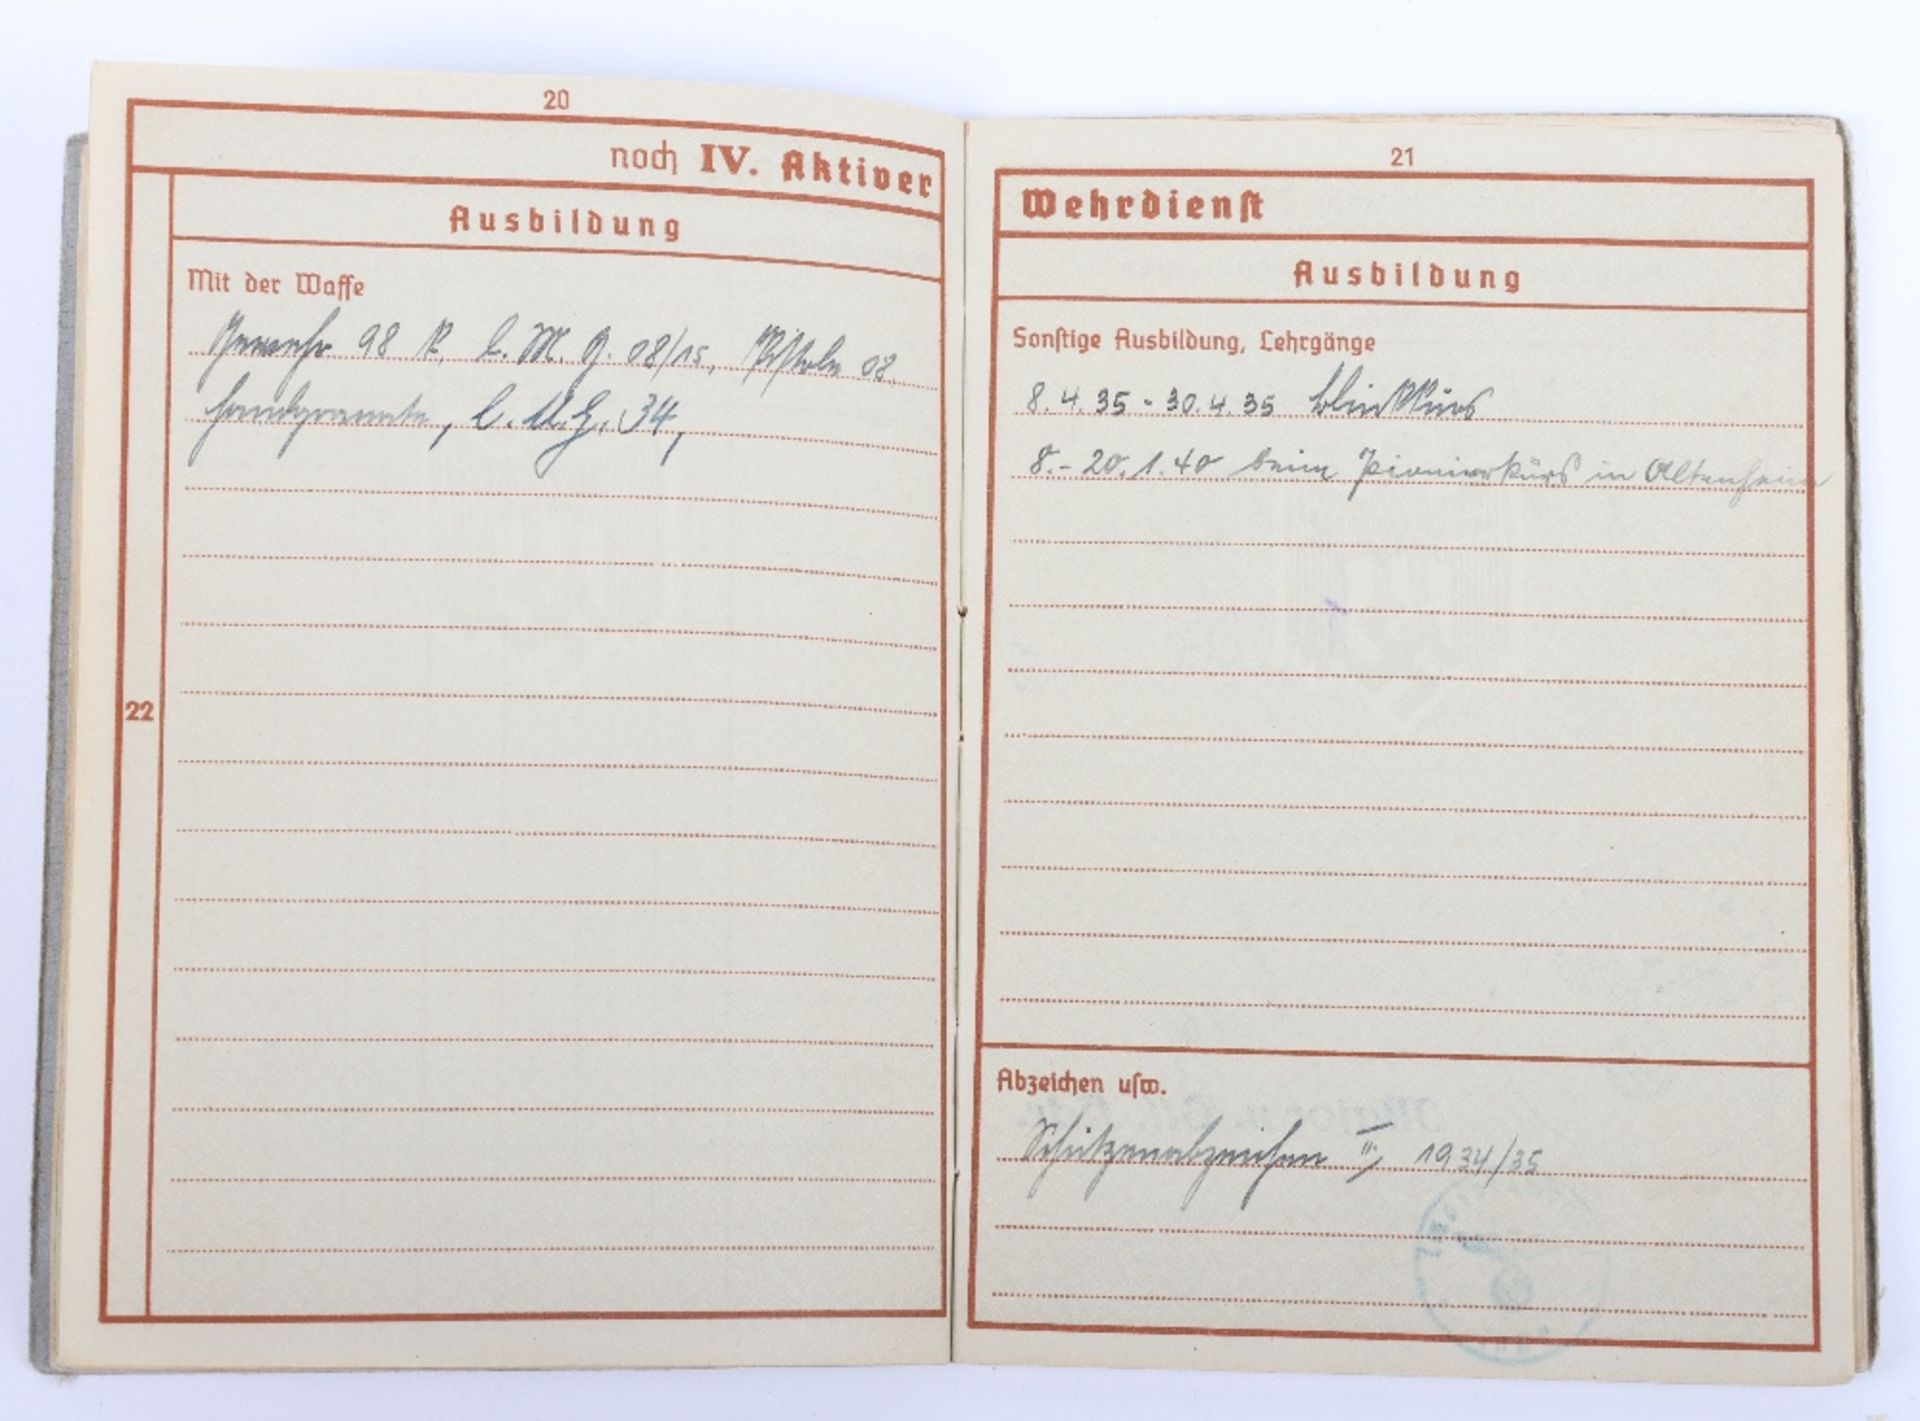 20
noch IV. Aktiver
Ausbildung
22
Mit der Waffe
Gewehr 98 K, l. M. G. 08/15, Pistole 08,
Handgranate, l. M.G. 34,
21
Wehrdienst
Ausbildung
Sonstige Ausbildung, Lehrgänge
8.4.35 - 30.4.35 Blinkkurs
8.- 20.1.40 beim Pionierkurs in Altenheim
Abzeichen usw.
Schützenabzeichen 1934/35